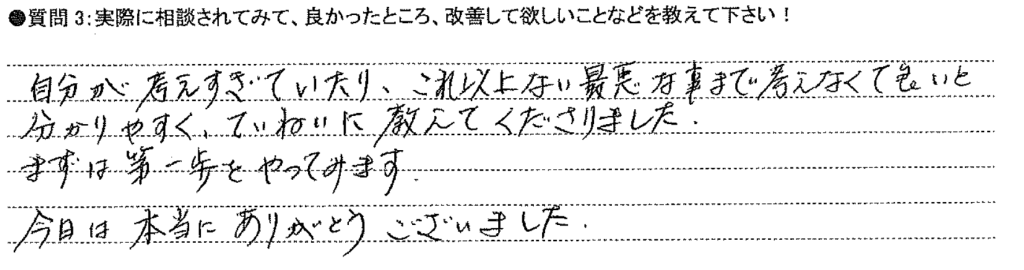 ●質問3:実際に相談されてみて、良かったところ、改善して欲しいことなどを教えて下さい！
自分が考えすぎていたり、これ以上ない最悪な事まで考えなくて良いと
分かりやすく、ていねいに教えてくださりました.
まずは第一歩をやってみます.
今日は本当にありがとうございました.